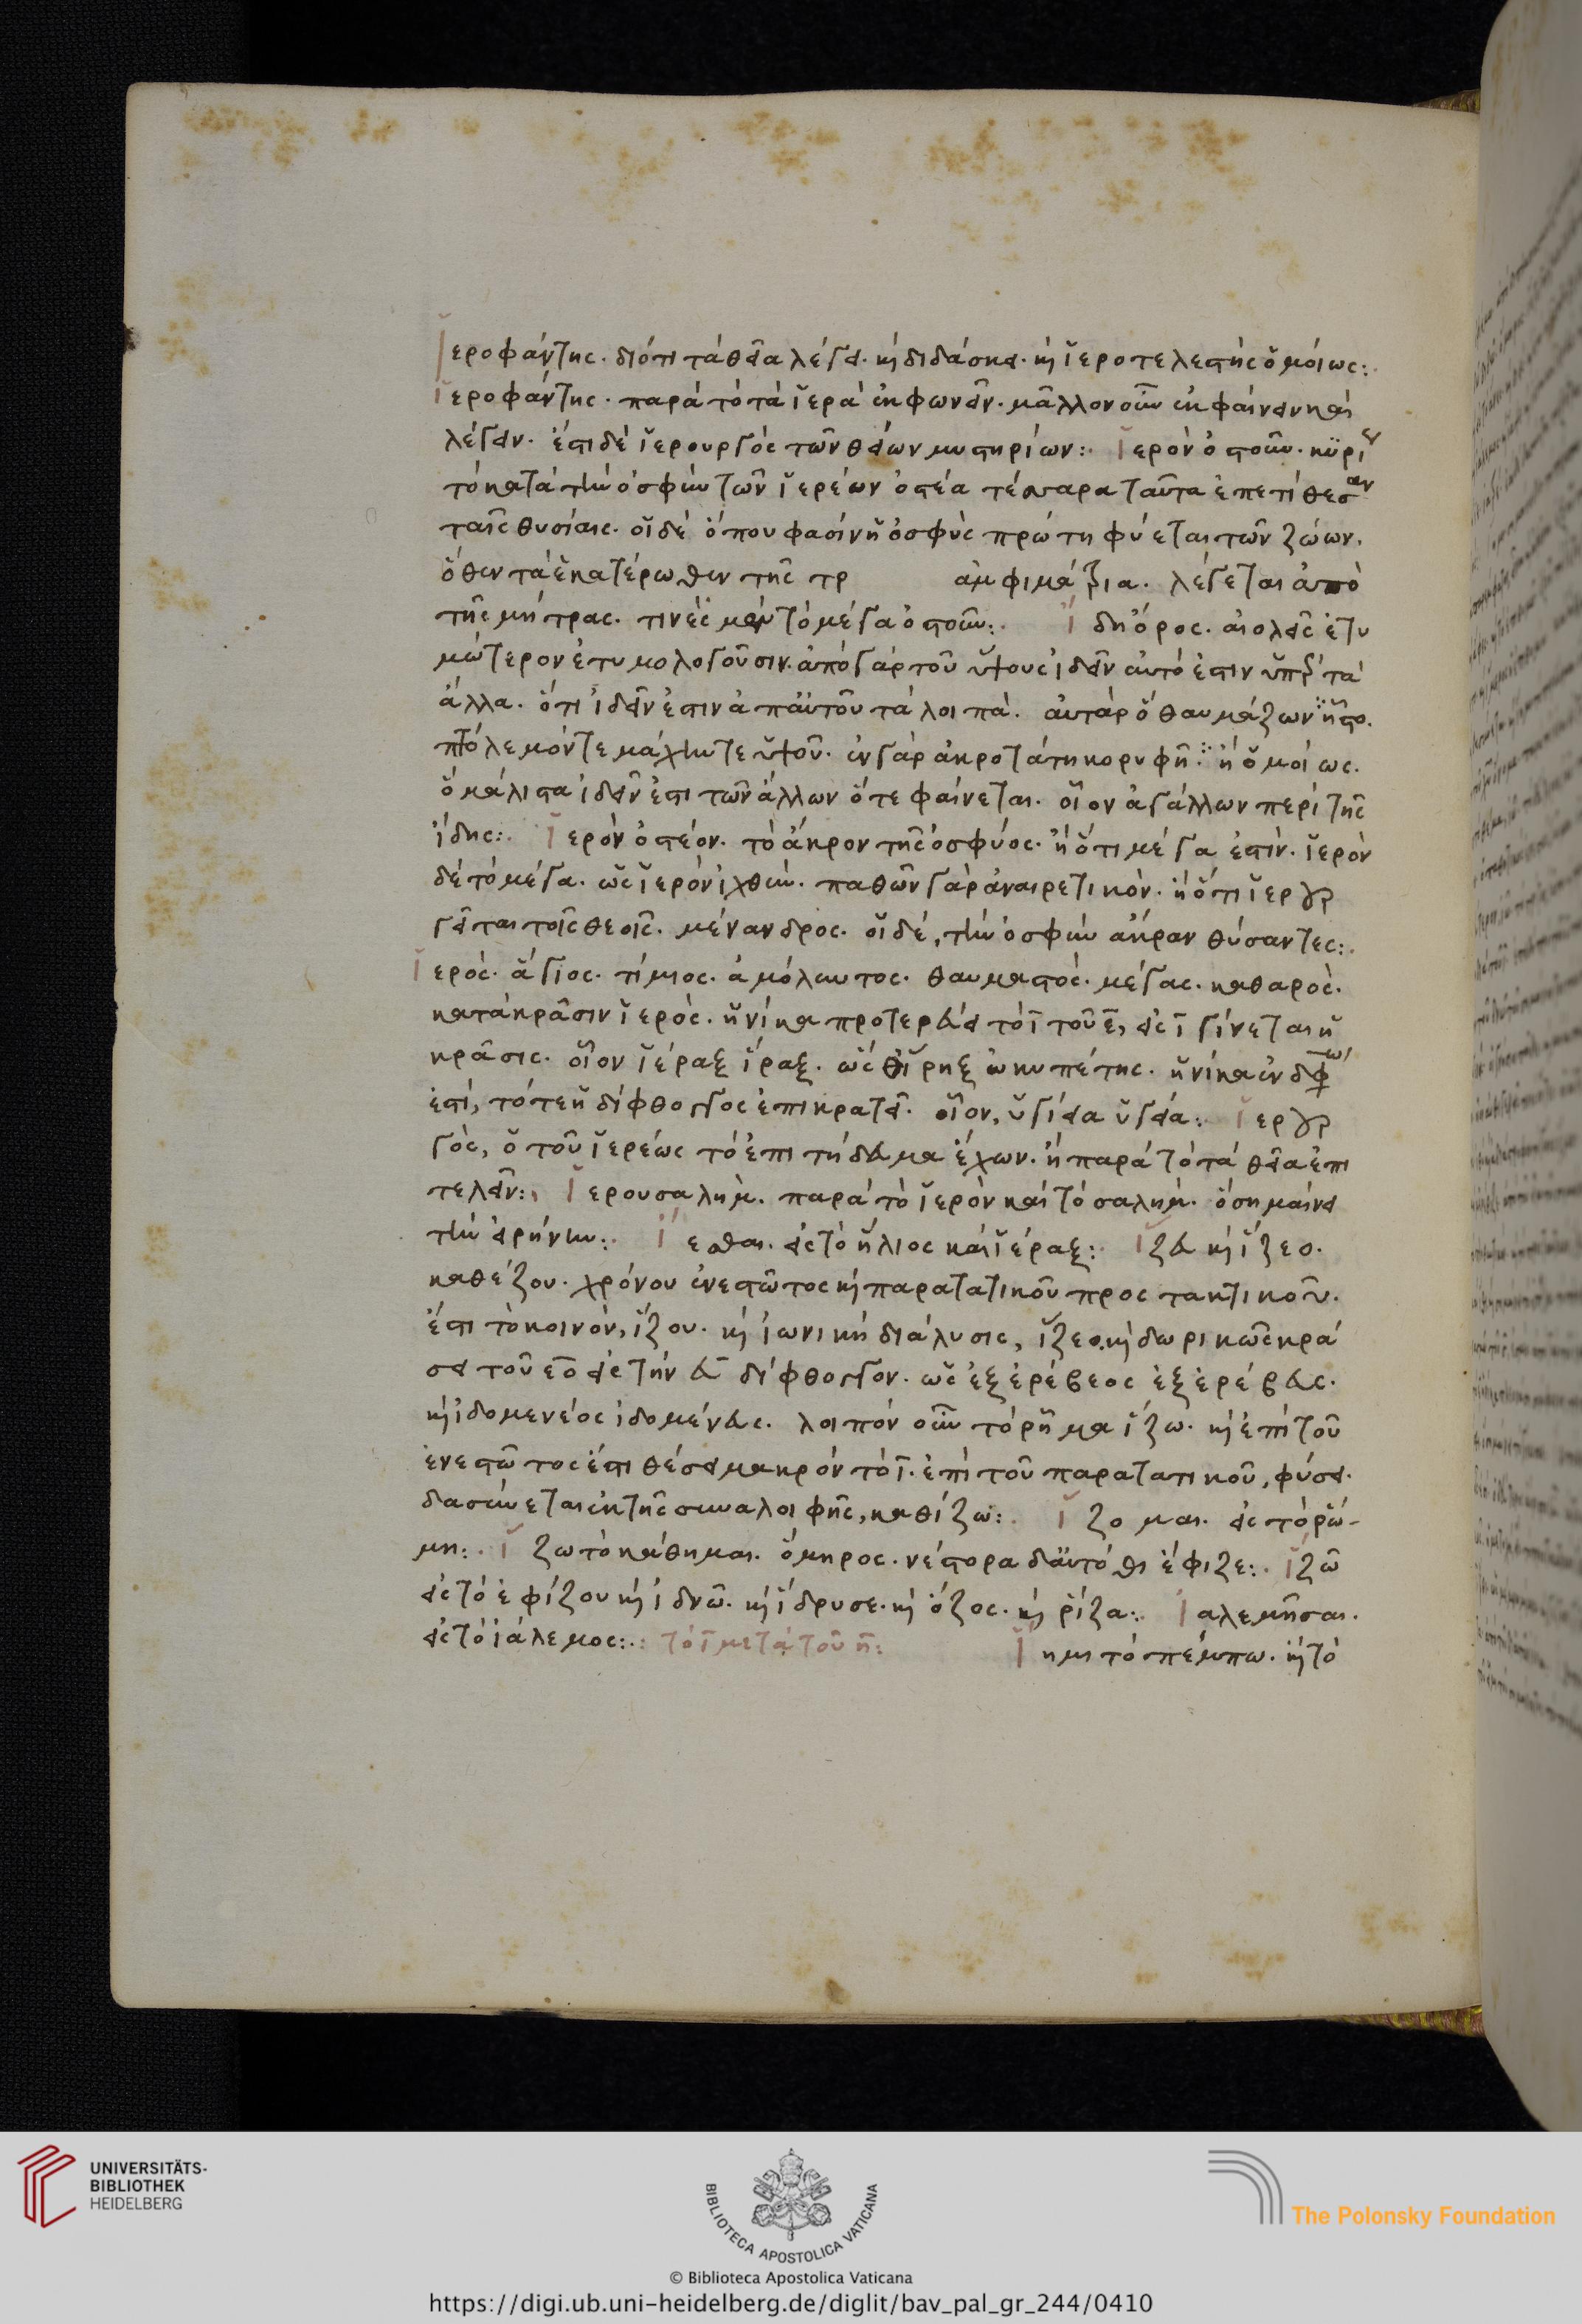 Ἱεροφάντης. διότι τὰ θεῖα λέγει. κὴ διδάσκει. κὴ ἱεροτελεστὴς ὁμοίως:
Ἱεροφάντης. παρὰ τὸ τὰ ἱερὰ ἐκφωνεῖν. μᾶλλον οὖν ἐκφαίνειν καὶ
λέγειν. ἔστι δὲ ἱερουργὸς τῶν θείων μυστηρίων: Ἱερὸν ὀστοῦν. κυρί
τὸ κατὰ τὴν ὀσφὺν τῶν ἱερέων ὀστέα τέσσαρα ταῦτα ἐπετίθεσαν
ταῖς θυσίαις. οἱ δὲ ὅπου φασὶν ἡ ὀσφὺς πρώτη φύεται τῶν ζώων.
ὅθεν τὰ ἑκατέρωθεν τῆς τρ ἀμφιμάτρια. λέγεται ἀπὸ
τῆς μήτρας. τινὲς μὲν τὸ μέγα ὀστοῦν: Ἴδη ὄρος. αἰολεῖς ἐτυ
μώτερον ἐτυμολογοῦσιν. ἀπὸ γὰρ τοῦ ὕψους ἰδεῖν αὐτό ἐστιν ὑπὲρ τὰ
ἄλλα. ὅτι ἰδεῖν ἐστιν ἀπ αὐτοῦ τὰ λοιπά. αὐτὰρ ὁ θαυμάζων ἧστο.
πτόλεμόν τε μάχην τε ὑψοῦ. ἐν γὰρ ἀκροτάτη κορυφῆ: ἢ ὁμοίως.
ὁ μάλιστα ἰδεῖν ἐστι τῶν ἄλλων ὅτε φαίνεται. οἷον ἀγάλλων περὶ τῆς
ἴδης: Ἱερὸν ὀστέον. τὸ ἄκρον τῆς ὀσφύος. ἢ ὅτι μέγα ἐστίν. ἱερὸν
δὲ τὸ μέγα. ὡς ἱερὸν ἰχθύν. παθῶν γὰρ ἀναιρετικόν. ἢ ὅτι ἱερουρ
γεῖται τοῖς θεοῖς. μένανδρος. οἱ δὲ, τὴν ὀσφὺν ἄκραν θύσαντες:
Ἱερός. ἅγιος. τίμιος. ἀμόλυντος. θαυμαστός. μέγας. καθαρός.
κατὰ κρᾶσιν ἱερός. ἡνίκα προτερεύει τὸ ι τοῦ ε, εἰς ι γίνεται ἡ
κρᾶσις. οἷον ἱέραξ ἵραξ. ὡς ἴρηξ ὠκυπέτης. ἡνίκα ἐν διφ
ἐστὶ, τότε ἡ δίφθογγος ἐπικρατεῖ. οἷον, ὑγίεια ὑγεία: Ἱερουρ
γός, ὁ τοῦ ἱερέως τὸ ἐπιτήδευμα ἔχων. ἢ παρὰ τὸ τὰ θεῖα ἐπι
τελεῖν: Ἱερουσαλήμ. παρὰ τὸ ἱερὸν καὶ τὸ σαλήμ. ὃ σημαίνει
τὴν εἰρήνην: Ἵεσθαι. εἰς τὸ ἥλιος καὶ ἱέραξ: Ἵζευ κὴ ἵζεο.
καθέζου. χρόνου ἐνεστῶτος κὴ παρατατικοῦ προστακτικοῦ.
ἔστι τὸ κοινὸν, ἵζου. κὴ ἰωνικὴ διάλυσις, ἵζεο. κὴ δωρικῶς κρά
σει τοῦ εο εἰς τὴν ευ δίφθογγον. ὡς ἐξ ἐρέβεος ἐξ ἐρέβευς.
κὴ ἰδομενέος ἰδομένευς. λοιπὸν οὖν τὸ ρῆμα ἵζω. κὴ ἐπὶ τοῦ
ἐνεστῶτος ἐστι θέσει μακρὸν τὸ ι. ἐπὶ τοῦ παρατατικοῦ, φύσει.
δασύνεται ἐκ τῆς συναλοιφῆς, καθίζω: Ἵζομαι. εἰς τὸ ρώ-
μη: Ἵζω τὸ κάθημαι. ὅμηρος. νέστορα δ αὐτόθι ἔφιζε: Ἱζῶ
εἰς τὸ ἐφίζου κὴ ἰδνῶ. κὴ ἵδρυσε. κὴ ὄζος. κὴ ῥίζα: Ἰαλεμῆσαι.
εἰς τὸ ἰάλεμος: τὸ ι μετὰ τοῦ η: Ἵημι τὸ πέμπω. κὴ τὸ
UNIVERSITÄTS-
BIBLIOTHEK
HEIDELBERG
BIBLIOTECA APOSTOLICA VATICANA
The Polonsky Foundation
© Biblioteca Apostolica Vaticana
https://digi.ub.uni-heidelberg.de/diglit/bav_pal_gr_244/0410